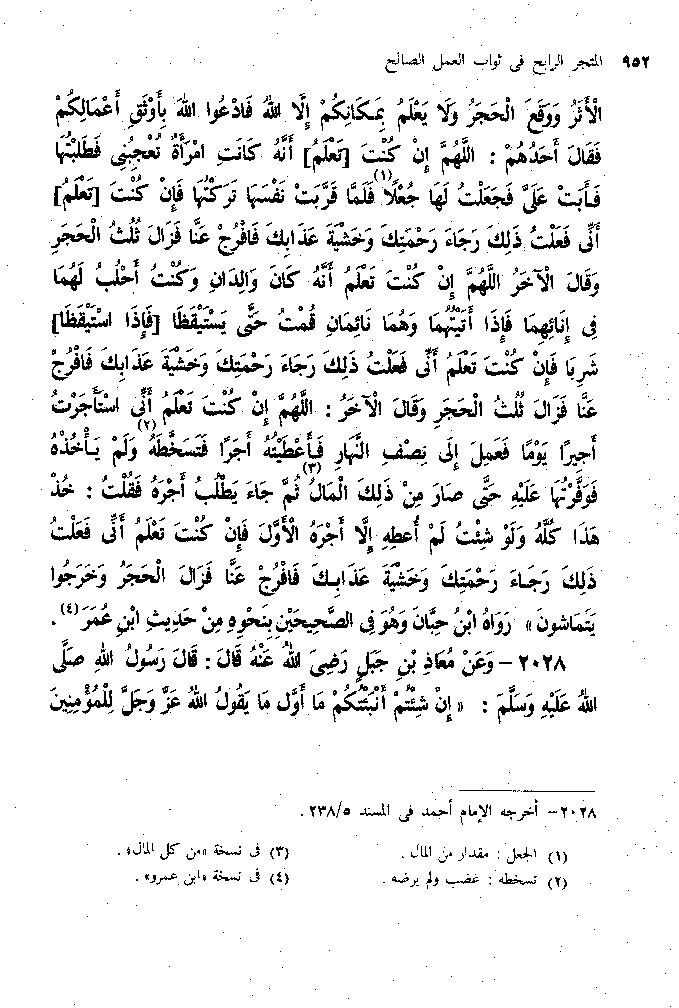 ٩٥٢ المتجر الرابح فى ثواب العمل الصالح
الْأَثَرُ وَوَقَعَ الْحَجَرُ وَلَا يَعْلَمُ بِمَكَانِكُمْ إِلَّا اللَّهُ فَادْعُوا اللَّهَ بِأَوْثَقِ أَعْمَالِكُمْ
فَقَالَ أَحَدُهُمْ : اللَّهُمَّ إِنْ كُنْتَ [تَعْلَمُ] أَنَّهُ كَانَتِ امْرَأَةٌ تُعْجِبُنِى فَطَلَبْتُهَا
فَأَبَتْ عَلَىَّ فَجَعَلْتُ لَهَا جُعْلًا(١) فَلَمَّا قَرَّبَتْ نَفْسَهَا تَرَكْتُهَا فَإِنْ كُنْتَ [تَعْلَمُ]
أَنِّى فَعَلْتُ ذَلِكَ رَجَاءَ رَحْمَتِكَ وَخَشْيَةَ عَذَابِكَ فَافْرُجْ عَنَّا فَزَالَ ثُلُثُ الْحَجَرِ
وَقَالَ الْآخَرُ اللَّهُمَّ إِنْ كُنْتَ تَعْلَمُ أَنَّهُ كَانَ وَالِدَانِ وَكُنْتُ أَحْلُبُ لَهُمَا
فِى إِنَائِهِمَا فَإِذَا أَتَيْتُهُمَا وَهُمَا نَائِمَانِ قُمْتُ حَتَّى يَسْتَيْقِظَا [فَإِذَا اسْتَيْقَظَا]
شَرِبَا فَإِنْ كُنْتَ تَعْلَمُ أَنِّى فَعَلْتُ ذَلِكَ رَجَاءَ رَحْمَتِكَ وَخَشْيَةَ عَذَابِكَ فَافْرُجْ
عَنَّا فَزَالَ ثُلُثُ الْحَجَرِ وَقَالَ الْآخَرُ : اللَّهُمَّ إِنْ كُنْتَ تَعْلَمُ أَنِّى اسْتَأْجَرْتُ
أَجِيرًا يَوْمًا فَعَمِلَ إِلَى نِصْفِ النَّهَارِ فَأَعْطَيْتُهُ أَجْرًا فَتَسَخَّطَهُ(٢) وَلَمْ يَأْخُذْهُ
فَوَفَّرْتُهَا عَلَيْهِ حَتَّى صَارَ مِنْ ذَلِكَ الْمَالُ(٣) ثُمَّ جَاءَ يَطْلُبُ أَجْرَهُ فَقُلْتُ : خُذْ
هَذَا كُلَّهُ وَلَوْ شِئْتُ لَمْ أُعْطِهِ إِلَّا أَجْرَهُ الْأَوَّلَ فَإِنْ كُنْتَ تَعْلَمُ أَنِّى فَعَلْتُ
ذَلِكَ رَجَاءَ رَحْمَتِكَ وَخَشْيَةَ عَذَابِكَ فَافْرُجْ عَنَّا فَزَالَ الْحَجَرُ وَخَرَجُوا
يَتَمَاشَونَ » رَوَاهُ ابْنُ حِبَّانَ وَهُوَ فِى الصَّحِيحَيْنِ بِنَحْوِهِ مِنْ حَدِيثِ ابْنِ عُمَرَ(٤) .
٢٠٢٨ – وَعَنْ مُعَاذِ بْنِ جَبَلٍ رَضِىَ اللَّهُ عَنْهُ قَالَ : قَالَ رَسُولُ اللهِ صَلَّى
اللهُ عَلَيْهِ وَسَلَّمَ : « إِنْ شِئْتُمْ أَنْبَئْتُكُمْ مَا أَوَّل مَا يَقُولُ اللهُ عَزَّ وَجَلَّ لِلْمُؤْمِنِينَ
٢٠٢٨ – أخرجه الإمام أحمد فى المسند ٢٣٨/٥ .
(١) الجعل : مقدار من المال .
(٢) تسخطه : غضب ولم يرضه .
(٣) فى نسخة «من كل المال» .
(٤) فى نسخة «ابن عمرو» .